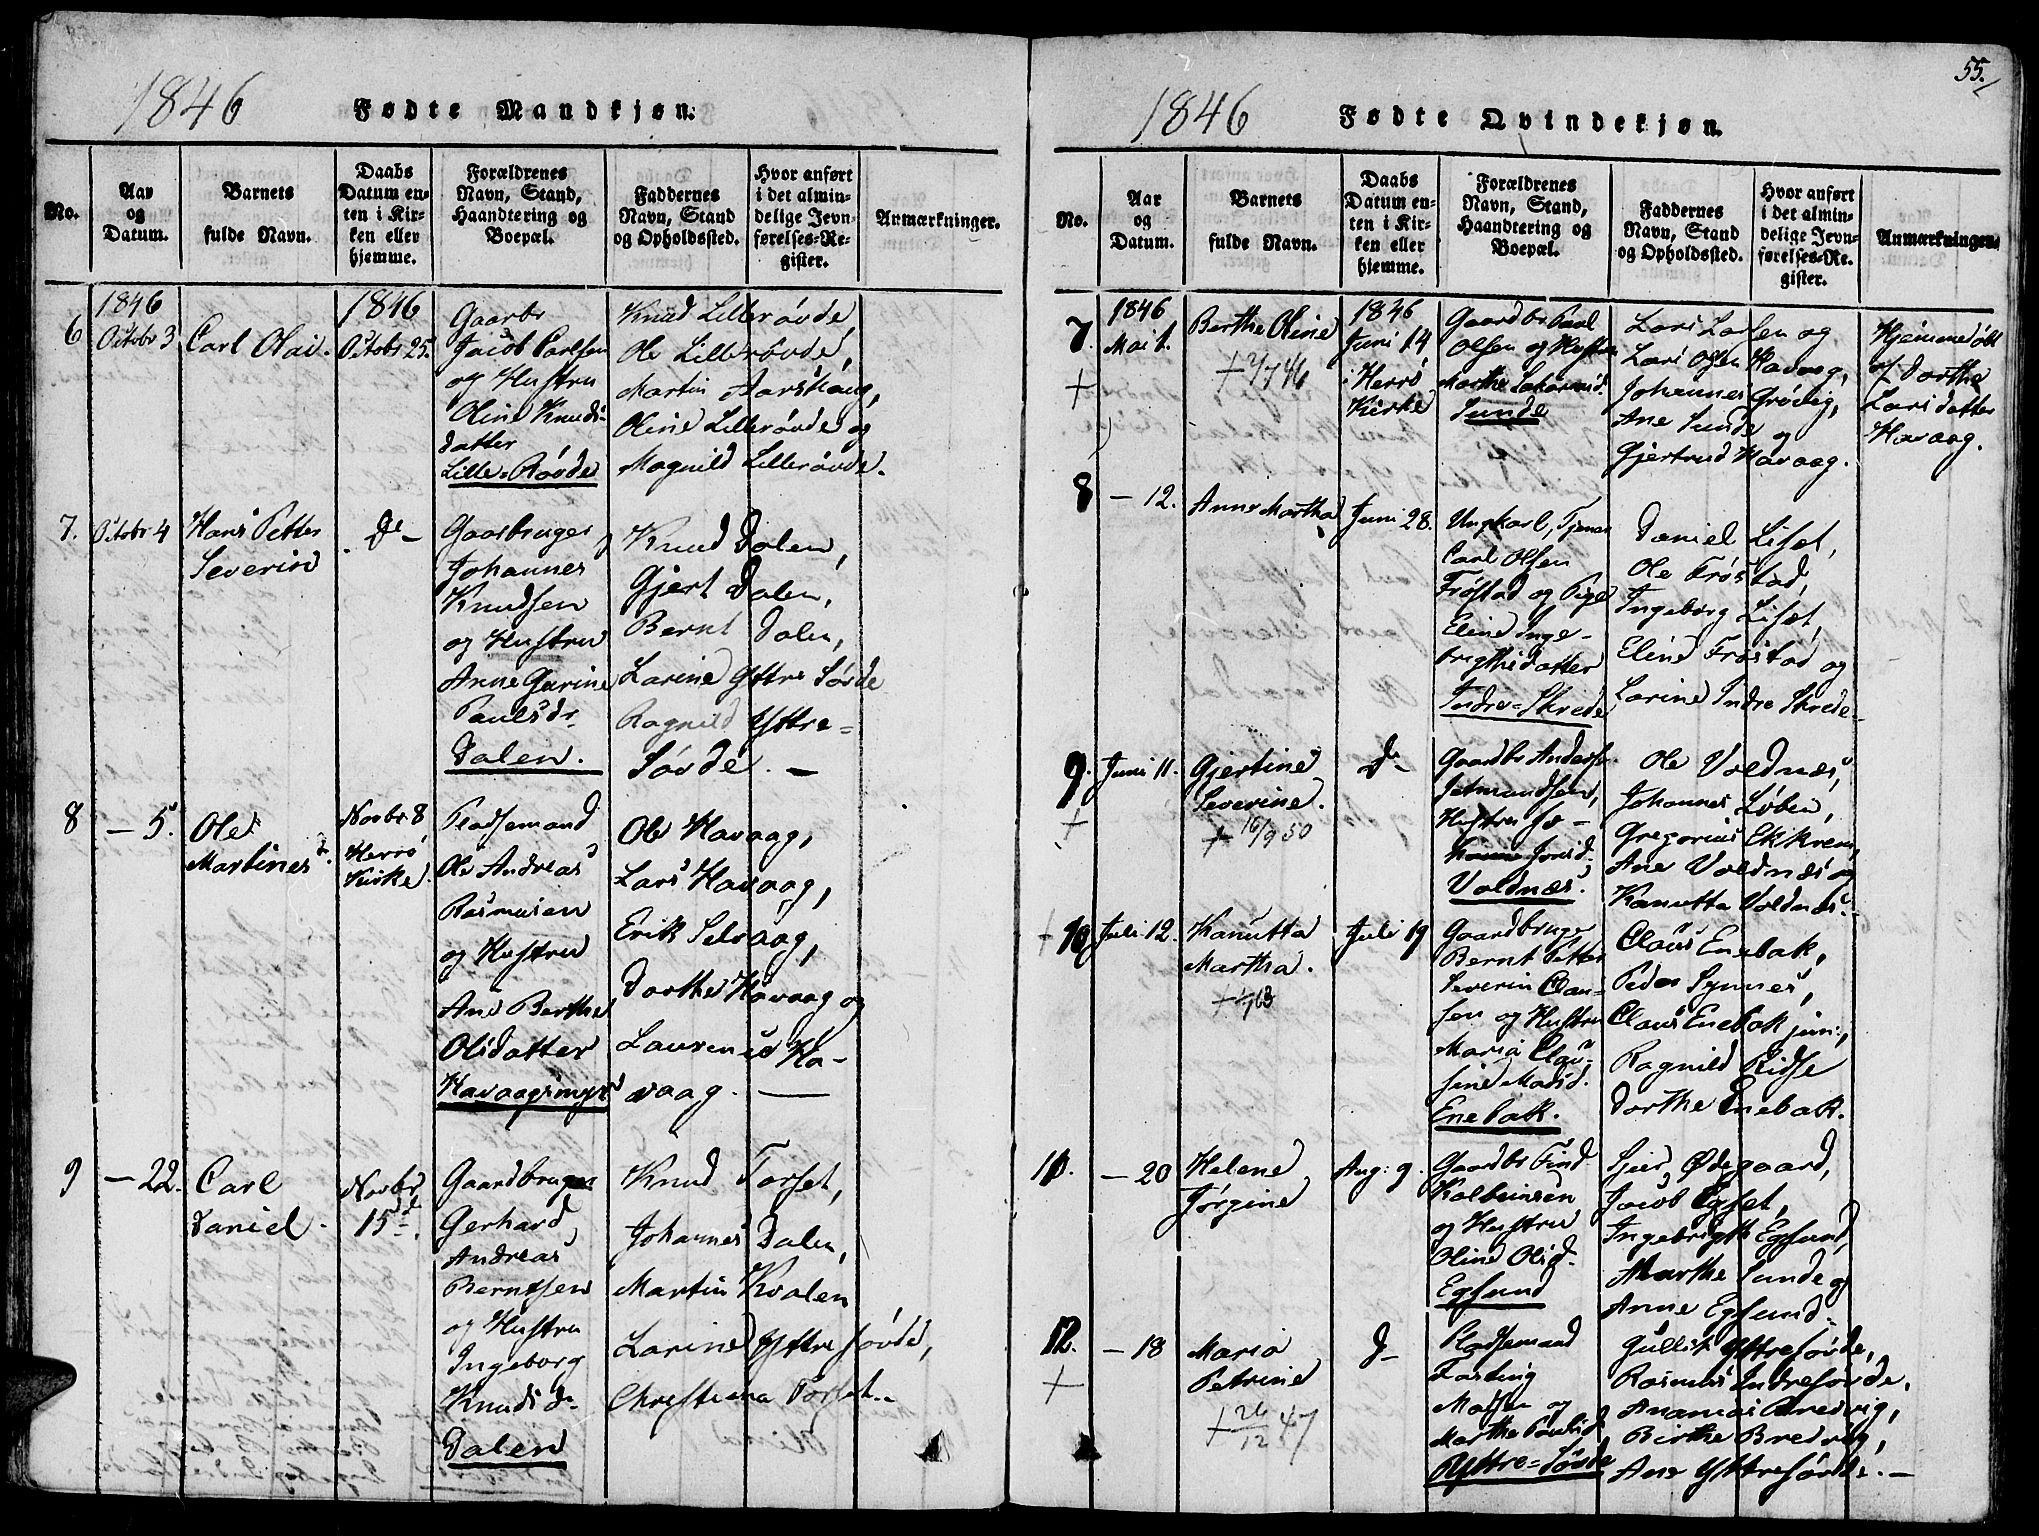 55.
1846
Fødte Mandkjøn.
No.
Aar
og
Datum.
Barnets
fulde Navn.
Daabs
Datum en-
ten i Kir-
ken eller
hjemme.
Forældrenes
Navn, Stand,
Haandtering og
Boepæl.
Faddernes
Navn, Stand
og Opholdssted.
Hvor anført
i det almin-
delige Jevn-
førelses-Re-
gister.
Anmærkninger.
6
1846
Octobr 3
Carl Olai.
1846
Octobr 25.
Gaardbr
Jacob Carlsen
og Hustru
Oline Knuds-
datter
Lille-Røvde
Knud Lillerøvde,
Ole Lillerøvde,
Martin Aarskoug,
Oline Lillerøvde og
Magnild Lillerøvde.
7.
Octobr 4
Hans Petter
Severin
do
Gaardbruger
Johannes
Knudsen
og Hustru
Anne Gurine
Paulsdr
Dalen.
Knud Dalen,
Gjert Dalen,
Bernt Dalen,
Larine Yttre Søvde
Ragnild Yttre-
Søvde. —
8
— 5.
Ole
Martines.
Novbr 8,
Herrö
Kirke.
Pladsemand
Ole Andreas
Rasmusen
og Hustru
Ane Berthe
Olsdatter
Havaagsmyr
Ole Havaag,
Lars Havaag,
Erik Selvaag,
Dorthe Havaag og
Laurense Ha-
vaag. —
9
— 22.
Carl
Daniel.
Novbr
15de.
Gaardbruger
Gerhard
Andreas
Berntsen
og Hustru
Ingeborg
Knudsdr
Dalen
Knud Torset,
Johannes Dalen,
Martin Kvalen
Larine Yttresøvde,
Christiana Torset.
1846
Fødte Qvindekjøn.
No.
Aar
og
Datum.
Barnets
fulde Navn.
Daabs
Datum en-
ten i Kir-
ken eller
hjemme.
Forældrenes
Navn, Stand,
Haandtering og
Boepæl.
Faddernes
Navn, Stand
og Opholdssted.
Hvor anført
i det almin-
delige Jevn-
førelses-Re-
gister.
Anmærkninger.
7.
+
1846
Mai 1.
Berthe Oline
+ 2/7 46
1846
Juni 14
i Herrö
Kirke
Gaardbr Paul
Olsen og Hustru
Marthe
Sunde
Lars Larsen og
Lars Olsen Havaag,
Johannes Grödig,
Ane Sunde og
Gjertrud Havaag.
Hjemmedøbt
af Dorthe
Larsdatter
Havaag.
8
— 12.
Anne Martha
Juni 28.
Ungkarl, Tjener
Carl Olsen
Frøstad og Pige
Eline Inge-
brigtsdatter
Indre-Skrede
Daniel Liset,
Ole Frøstad,
Ingeborg Liset,
Eline Frøstad og
Larine Indre Skrede.
9.
+
Juni 11.
Gjertine
Severine.
+ 16/9 50
do
Gaardbr Anders
Jetmundsen,
Hustru Jo-
hanne Jonsd.
Voldnæs.
Ole Voldnæs,
Johannes Løben,
Gregorius Ekkrem,
Ane Voldnæs og
Kanutta Voldnæs.
+ 10
Juli 12.
Kanutta
Martha.
Juli 19
Gaardbruger
Bernt Petter
Severin Clau-
sen og Hustru
Maria Clau-
sine Madsd.
Enebak.
Claus Enebak,
Peder Synnes,
Claus Enebak jun:,
Ragnild Ridse
Dorthe Enebak.
11.
— 20
Helene
Jörgine
Aug: 9.
Gaardbr Find
Kolbeinsen
og Hustru
Oline Olsd.
Egsund
Sjur Ødegaard,
Jacob Egset,
Ingebrigt Egsund,
Marthe Sunde og
Anne Egsund.
12.
+
— 18
Maria
Petrine
+ 26/12 47
do
Pladsemand
Fasting
Madsen og
Marthe Poulsd.
Yttre-Søvde
Gullik Yttresøvde,
Rasmus Indresøvde,
Ananias Bredvig,
Birthe Bredvig,
Ane Yttresøvde. —